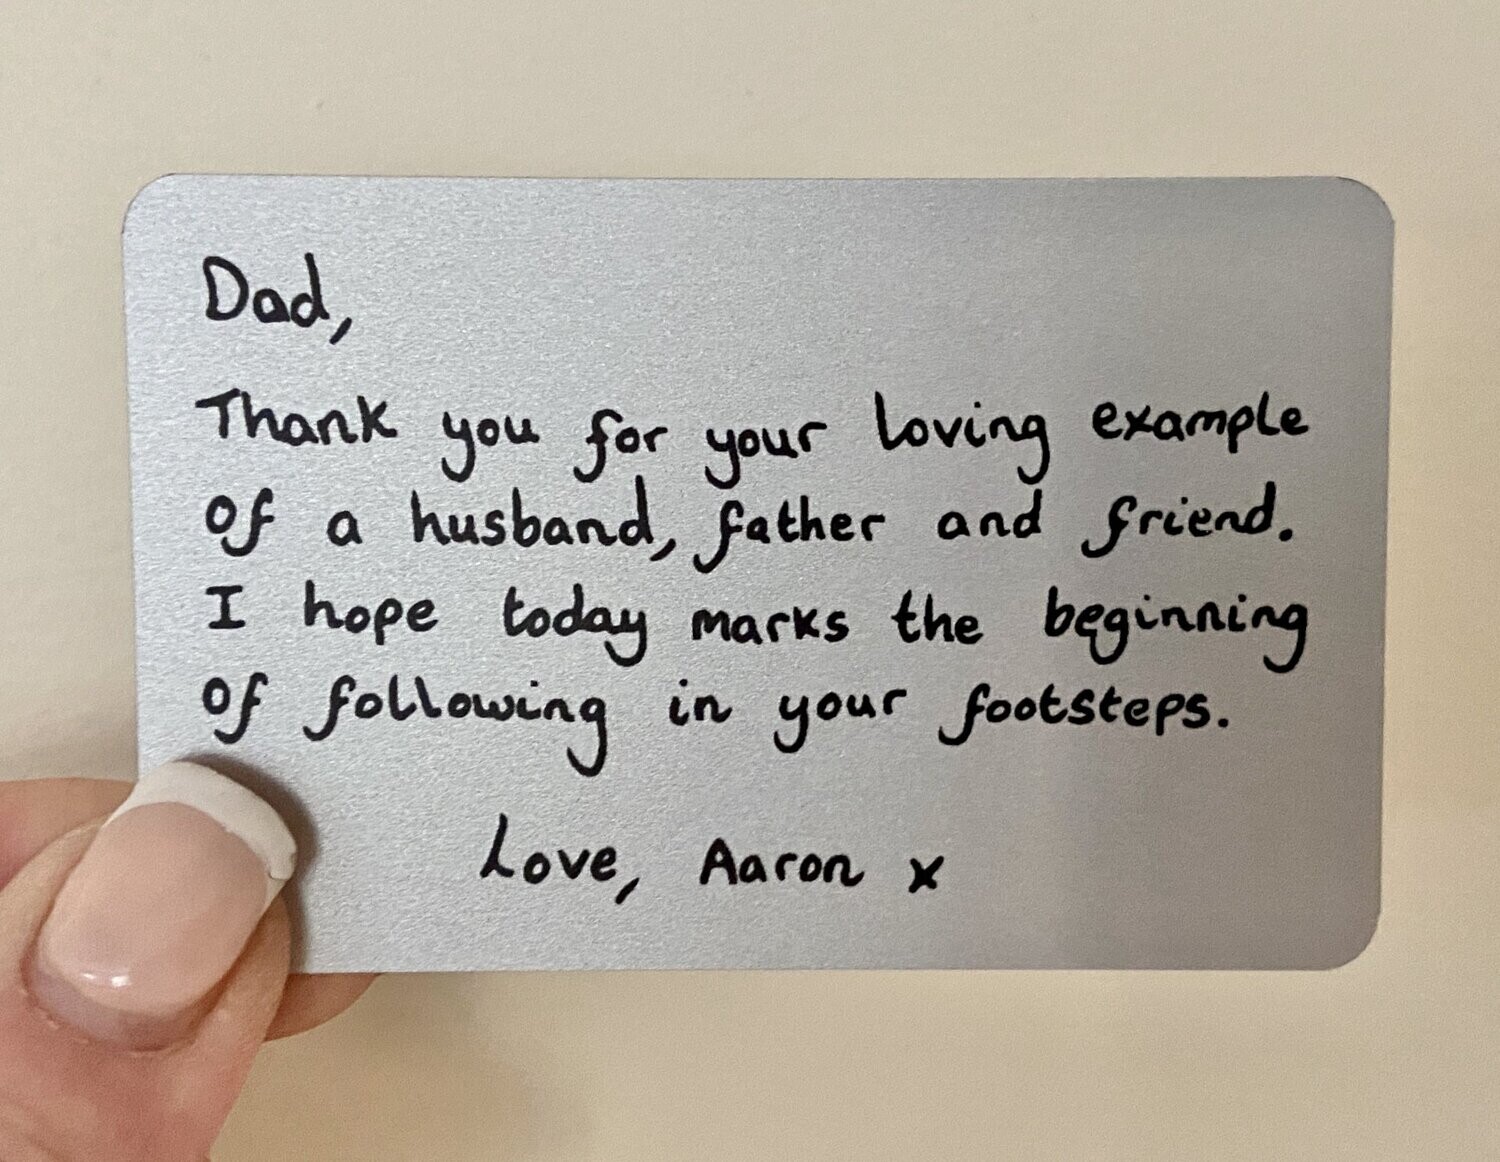 Dad,
Thank you for your loving example
of a husband, father and friend.
I hope today marks the beginning
of following in your footsteps.
Love, Aaron x